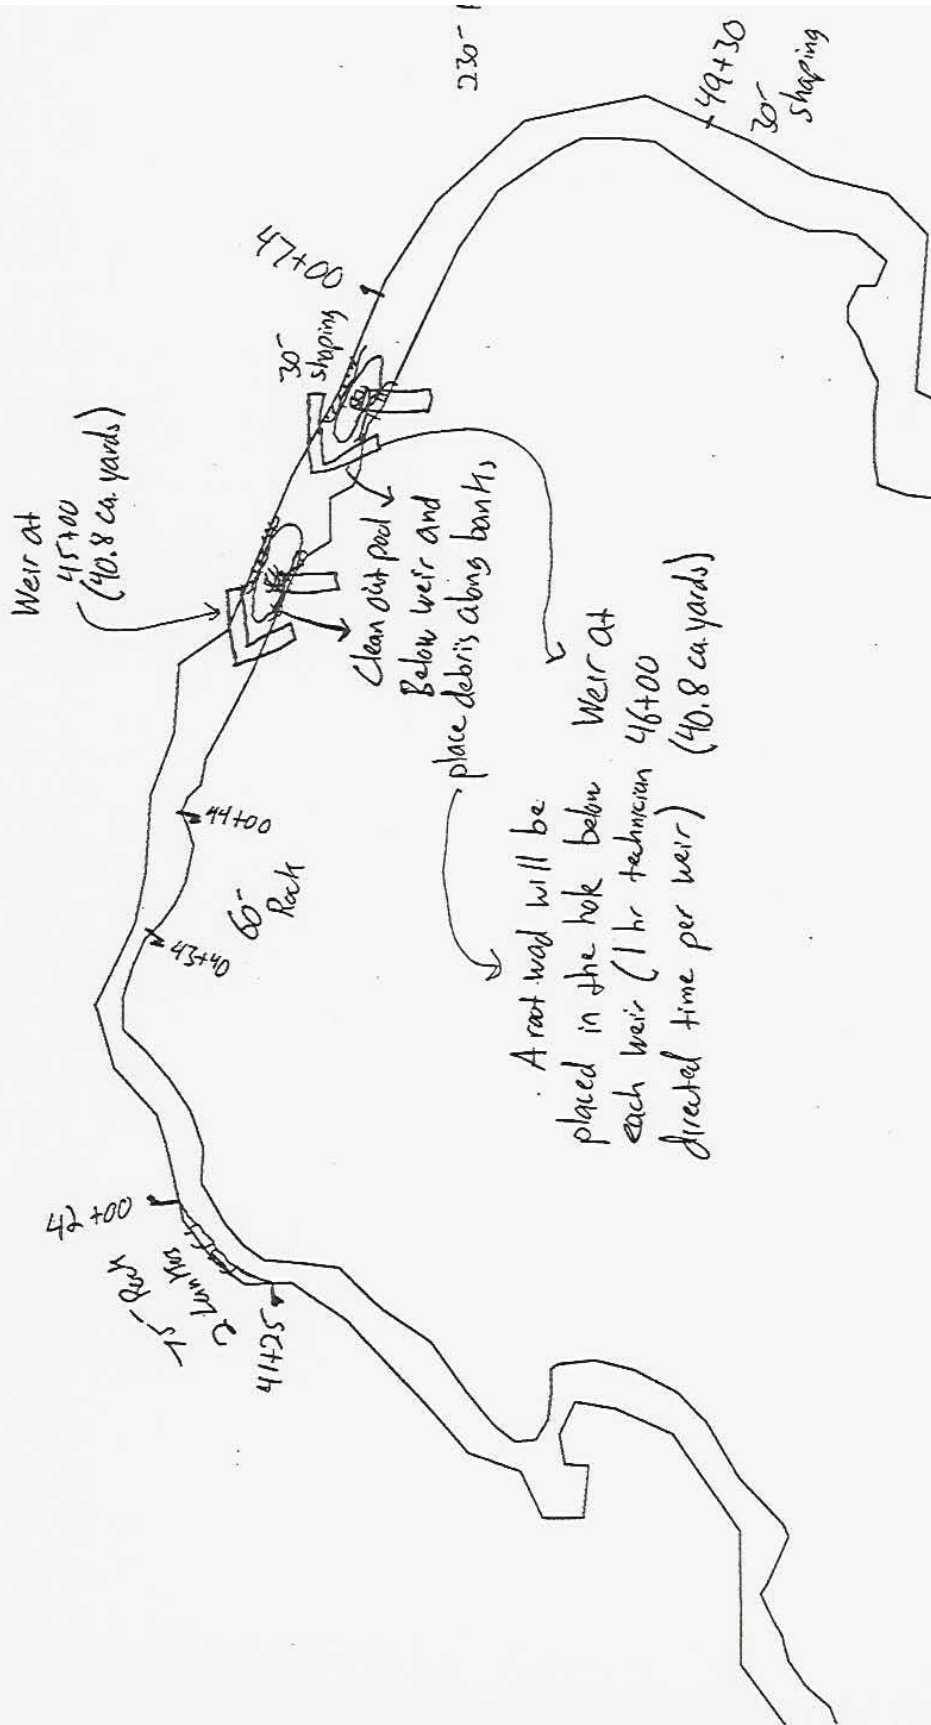 Weir at
45+00
(40.8 cu. yards)
47+00
30'
shaping
230'
49+30
30'
shaping
Clean out pool
Below weir and
place debris along banks
44+00
60'
Rock
43+40
. A root wad will be
placed in the hole below
each weir (1 hr technician
directed time per weir)
Weir at
46+00
(40.8 cu. yards)
42+00
75' Rock
2 Lunkers
41+25